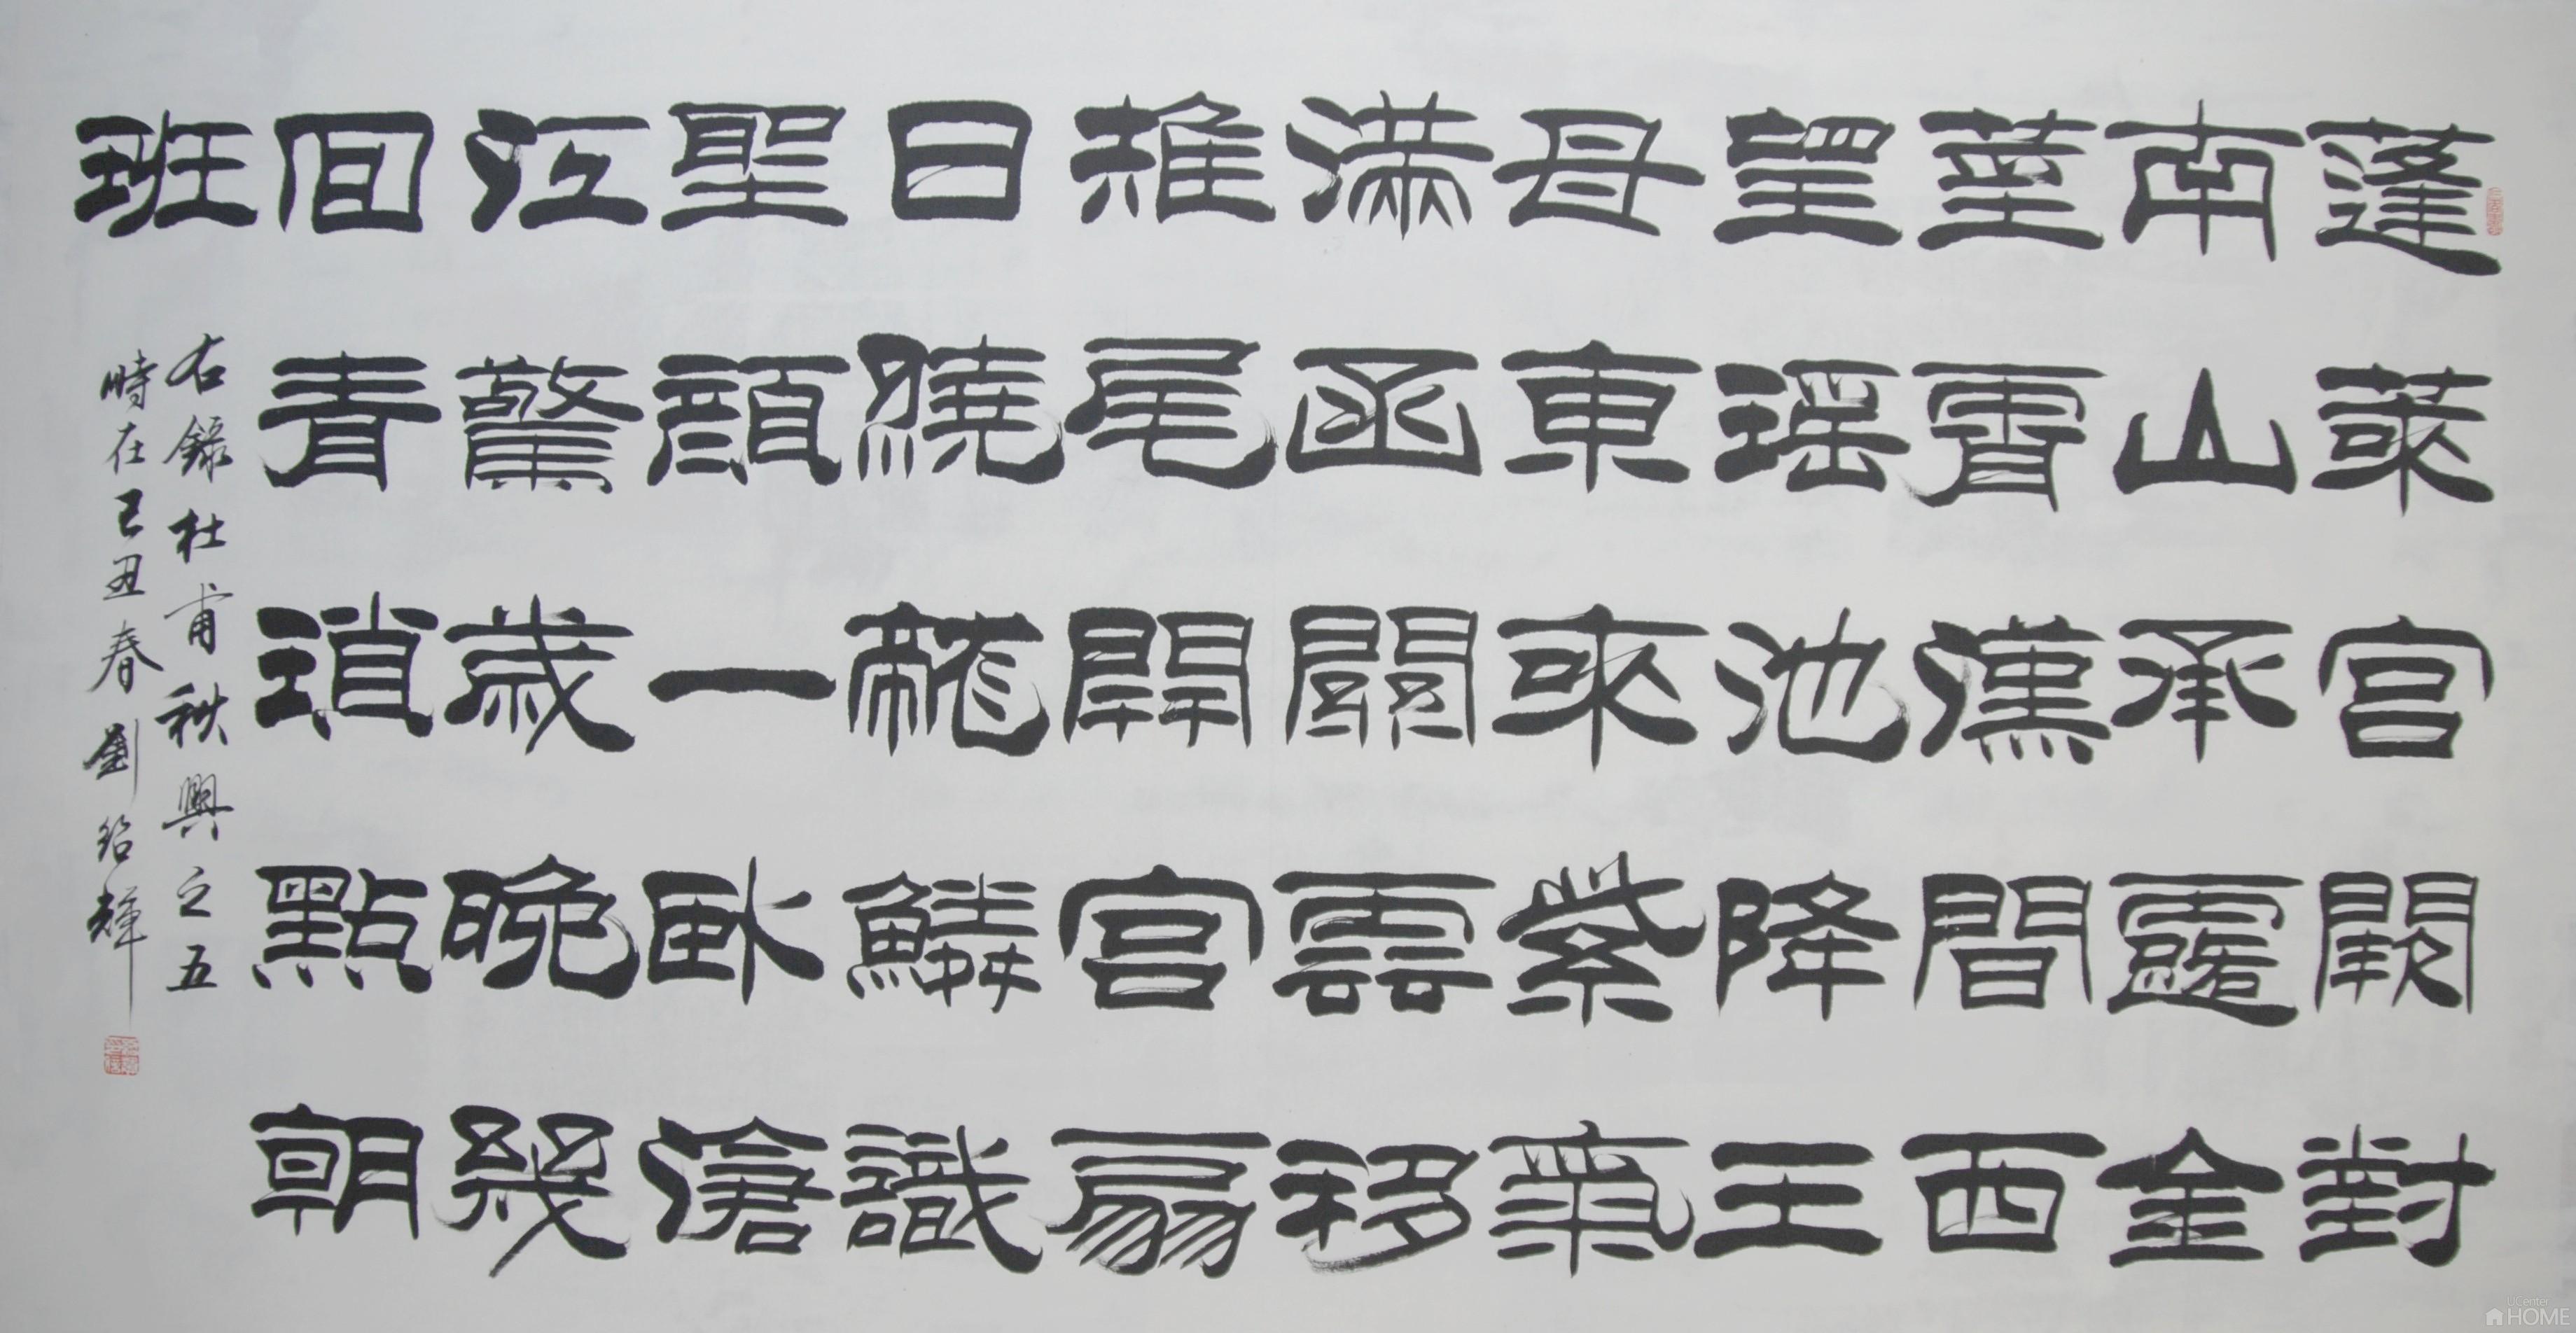 蓬萊宮闕對
南山承露金
莖霄漢間西
望瑶池降王
母東來紫氣
滿函關雲移
雉尾開宮扇
日繞龍鱗識
聖顏一臥滄
江驚歲晚幾
回青瑣點朝
班
右錄杜甫秋興之五
時在己丑春劉紹輝
UCenter
HOME